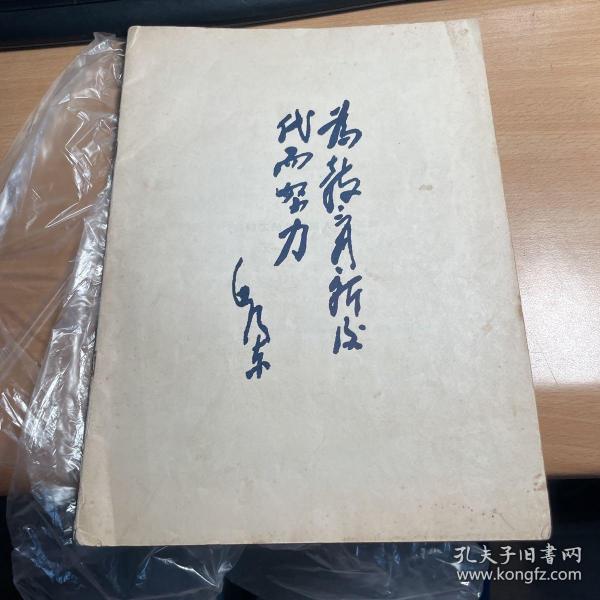 為教育新後
代而努力
毛泽东
孔夫子旧書网
www.kongfz.com